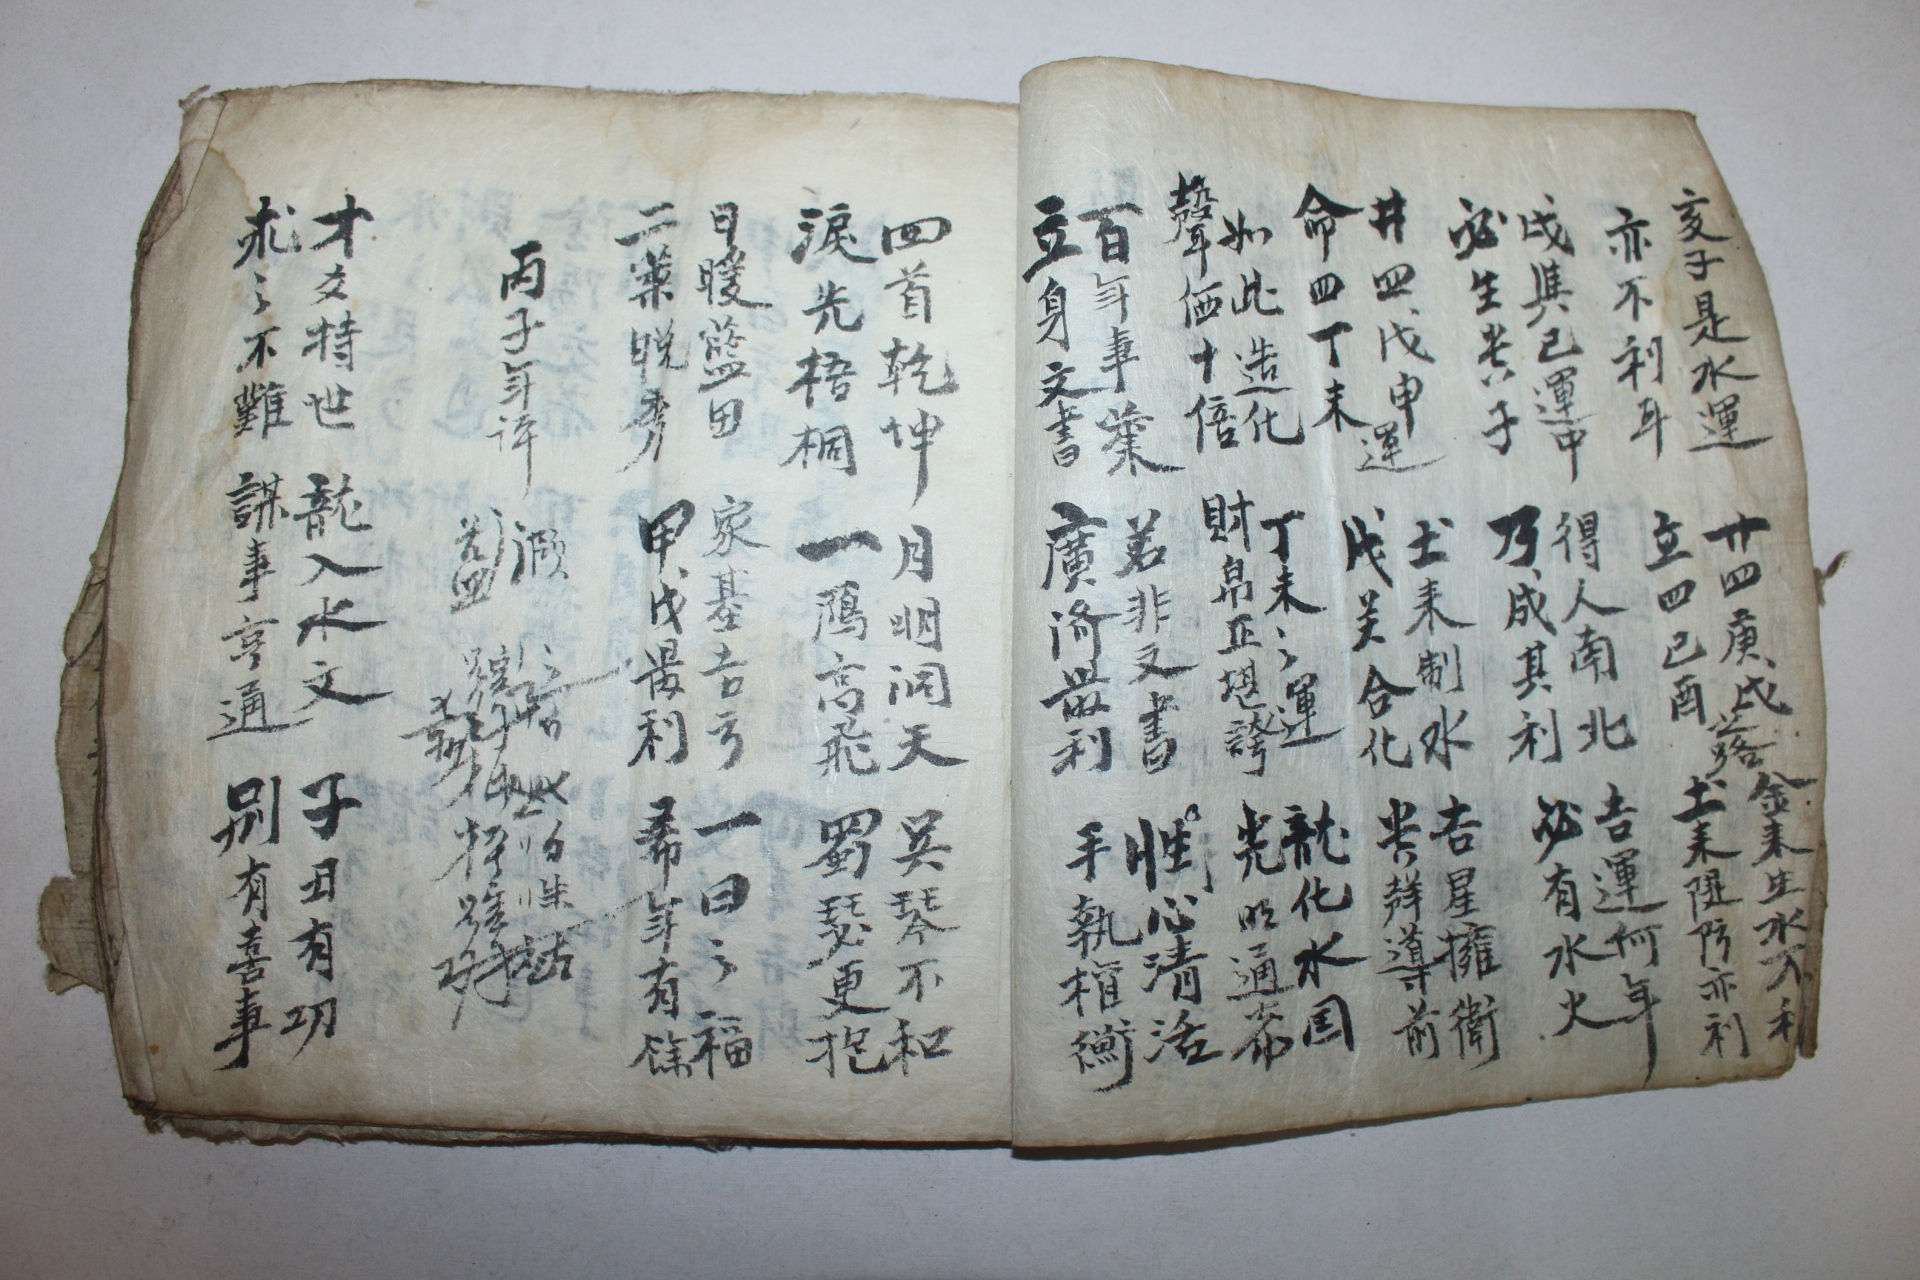 亥子是水運 廿四庚戌落 金来生水不利
亦不利耳 立四己酉 土来隄防亦利
戌與己運中 得人南北 吉運何年
必生貴子 乃成其利 必有水火
廿四戊申運 土来制水 吉星擁衛
命四丁未 戊癸合化 貴群導前
如此造化 丁未之運 龍化水国
聲価十倍 財帛亞堪誇 光明通
百年事業 若非文書 性心清活
立身文書 廣濟最利 手執權衡
四首乾坤 月明洞天 吴琴不和
淚先梧桐 一鴈高飛 蜀瑟更抱
日暖藍田 家基吉亨 一日之福
二葉晩秀 甲戌最利 希年有餘
丙子年
才文特世 龍入水文 子丑有功
求之不難 謀事亨通 別有喜事